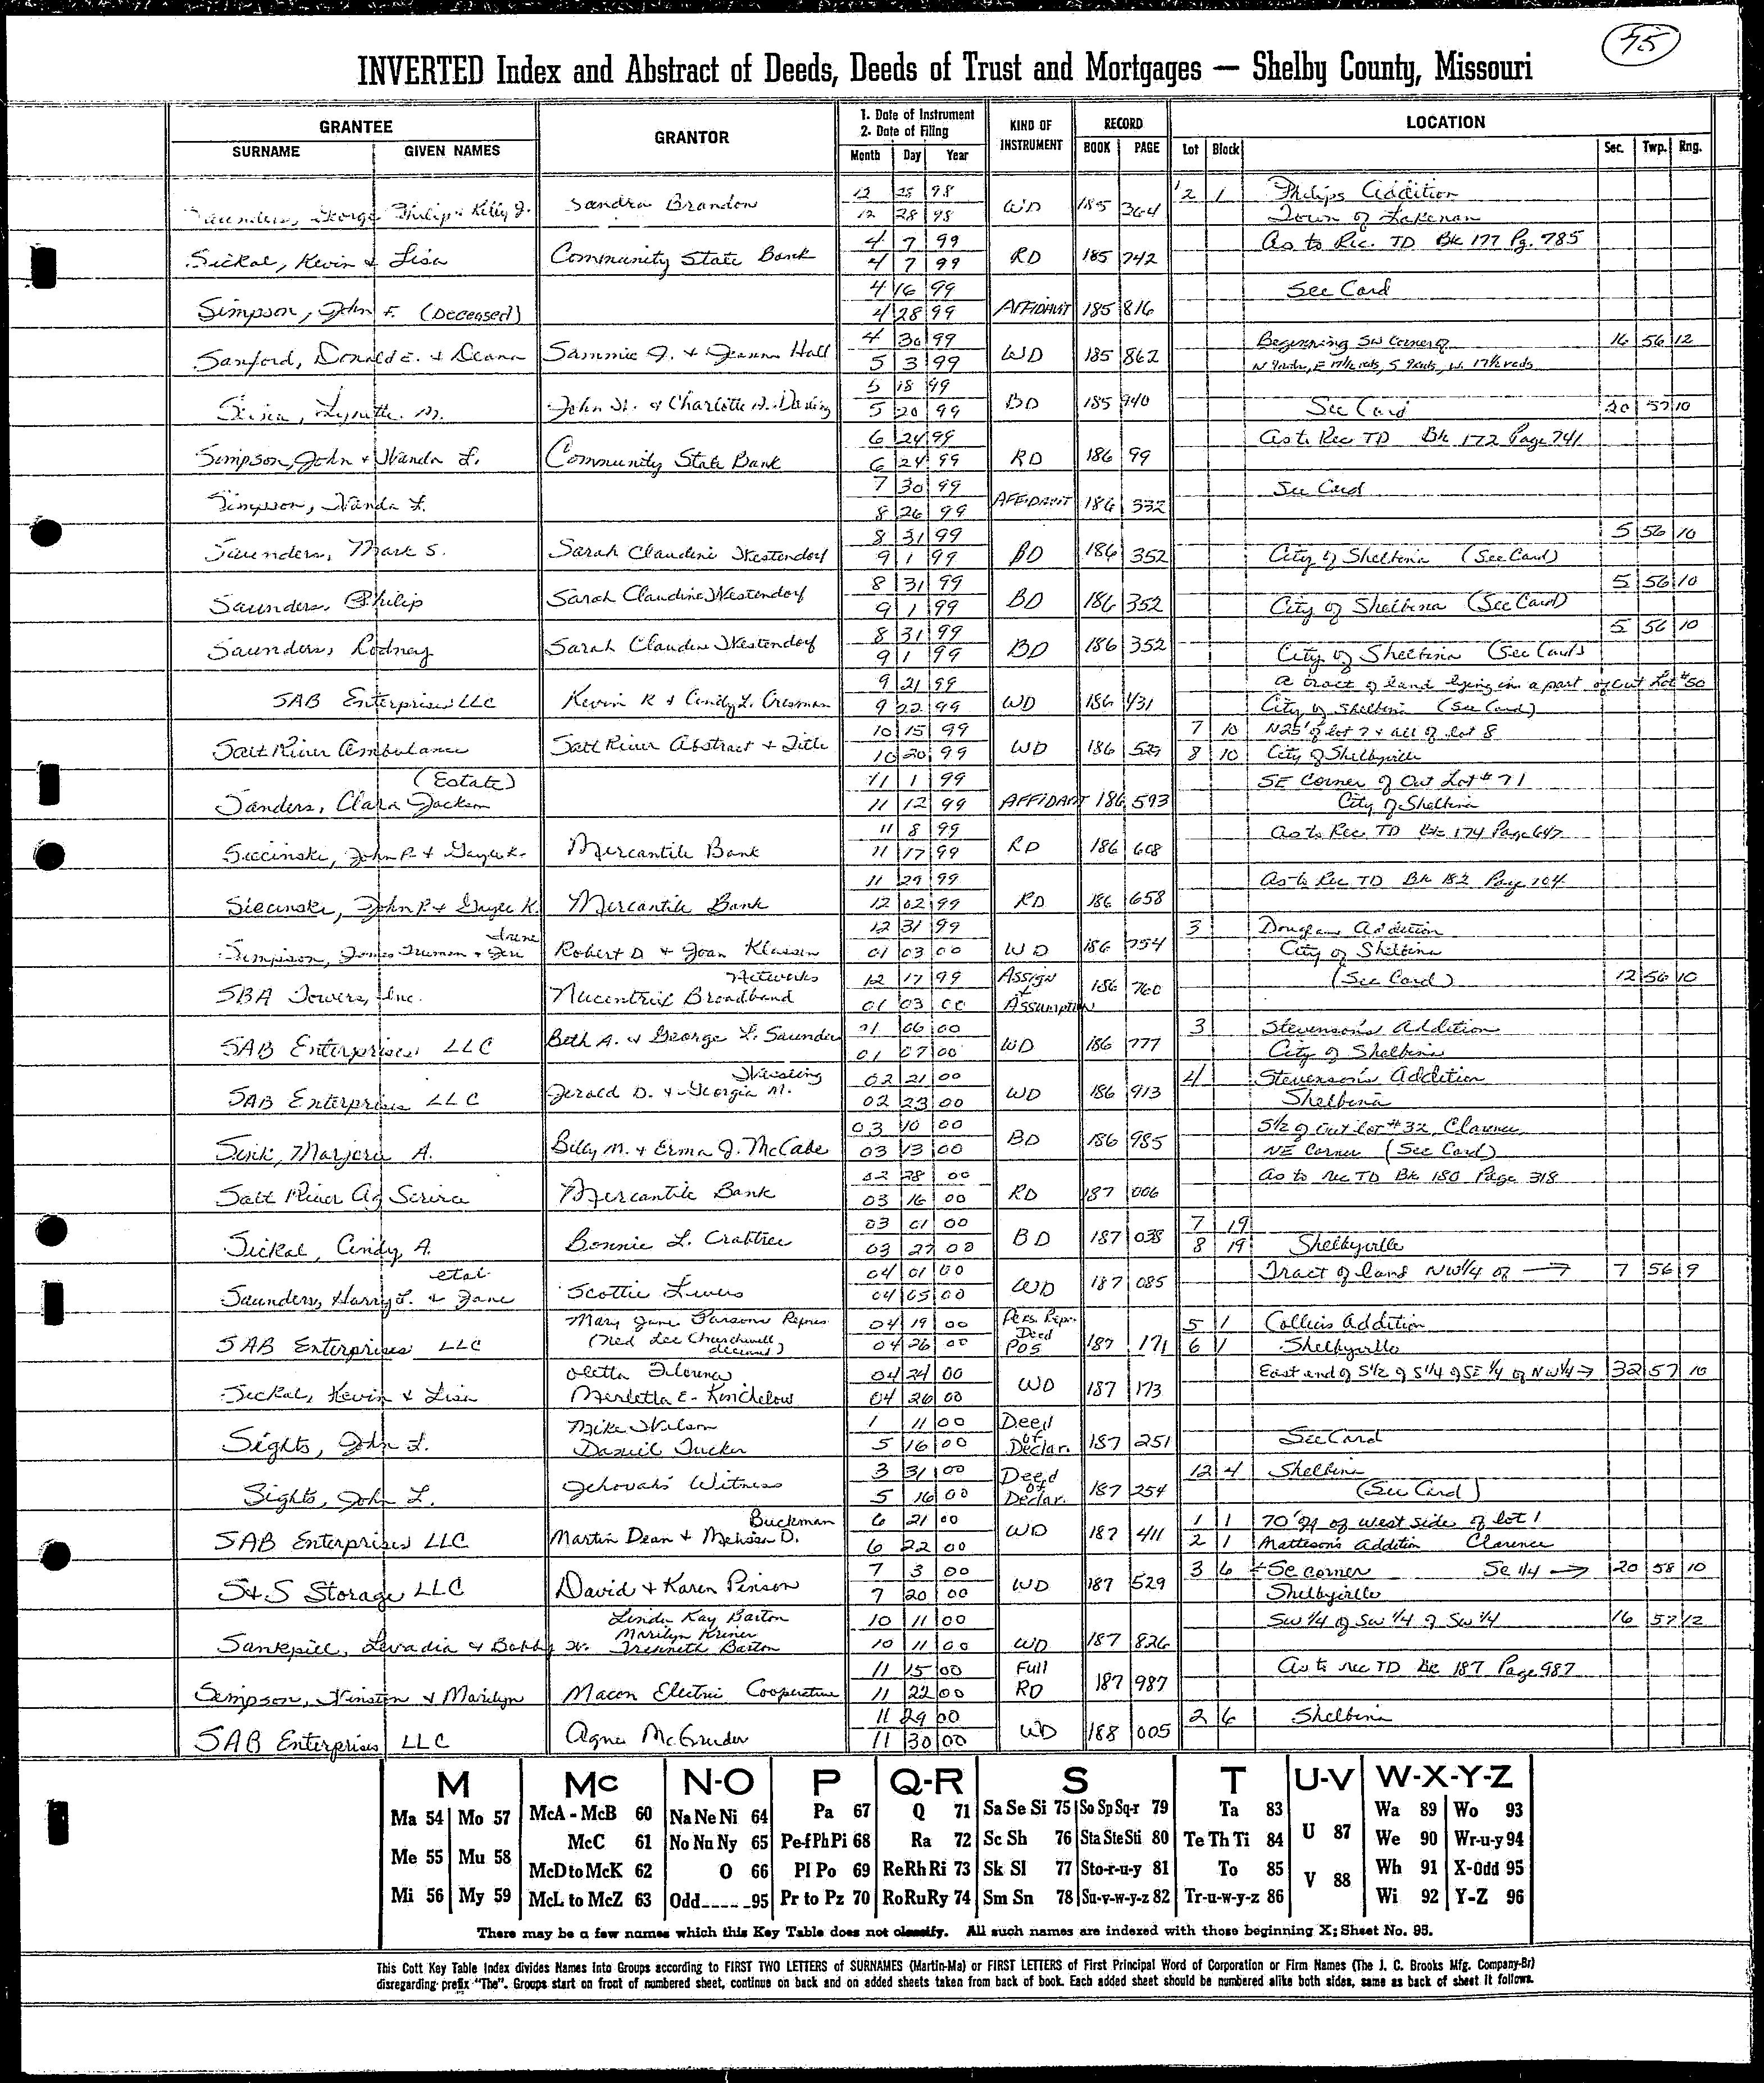 75
INVERTED Index and Abstract of Deeds, Deeds of Trust and Mortgages — Shelby County, Missouri
GRANTEE GRANTOR 1. Date of Instrument 2. Date of Filing KIND OF INSTRUMENT RECORD LOCATION
SURNAME GIVEN NAMES Month Day Year BOOK PAGE Lot Block Sec. Twp. Rng.
12 25 98 2 1 Philips Addition
Saunders, George Philip & Kelly J. Sandra Brandon 12 28 98 WD 185 364 Town of Lakenan
4 7 99 As to Rec. TD Bk 177 Pg. 785
Sickal, Kevin & Lisa Community State Bank 4 7 99 RD 185 742
4 16 99 See Card
Simpson, John F. (Deceased) 4 28 99 AFFIDAVIT 185 816
4 30 99 Beginning SW Corner of 16 56 12
Sanford, Donald E. & Deana Sammie J. & Jeanne Hall 5 3 99 WD 185 862 N 9 rods, E 17½ rods, S 9 rods, W. 17½ rods
5 18 99
Lynette M. John H. & Charlotte 5 20 99 BD 185 940 See Card 20 57 10
6 24 99 As to Rec TD Bk 172 Page 741
Simpson, John & Wanda L. Community State Bank 6 24 99 RD 186 99
7 30 99 See Card
Simpson, Wanda L. 8 26 99 AFFIDAVIT 186 332
8 31 99 5 56 10
Saunders, Mark S. Sarah Claudine Westendorf 9 1 99 BD 186 352 City of Shelbina (See Card)
8 31 99 5 56 10
Saunders, Philip Sarah Claudine Westendorf 9 1 99 BD 186 352 City of Shelbina (See Card)
8 31 99 5 56 10
Saunders, Rodney Sarah Claudine Westendorf 9 1 99 BD 186 352 City of Shelbina (See Card)
9 21 99 a tract of land lying in a part of Out Lot #50
SAB Enterprises LLC Kevin R & Cindy L. Cresman 9 22 99 WD 186 431 City of Shelbina (See Card)
10 15 99 7 10 N25' of lot 7 & all of lot 8
Salt River Ambulance Salt River Abstract & Title 10 20 99 WD 186 529 8 10 City of Shelbyville
(Estate) 11 1 99 SE Corner of Out Lot #71
Sanders, Clara Jackson 11 12 99 AFFIDAVIT 186 593 City of Shelbina
11 8 99 As to Rec TD Bk 174 Page 647
Siecinski, John P. & Gayle K. Mercantile Bank 11 17 99 RD 186 608
11 29 99 As to Rec TD Bk 182 Page 104
Siecinski, John P. & Gayle K. Mercantile Bank 12 02 99 RD 186 658
Irene 12 31 99 3 Addition
Simpson, James Truman & Robert D & Joan Klassen 01 03 00 WD 186 754 City of Shelbina
Networks 12 17 99 Assign (See Card) 12 56 10
SBA Towers, Inc. Nucentrix Broadband 01 03 00 & Assumption 186 760
01 06 00 3 Stevenson's Addition
SAB Enterprises LLC Beth A. & George L. Saunders 01 07 00 WD 186 777 City of Shelbina
02 21 00 4 Stevenson's Addition
SAB Enterprises LLC Jerald D. & Georgia M. 02 23 00 WD 186 913 Shelbina
03 10 00 S½ of Out Lot #32, Clarence
Sink, Marjorie A. Billy M. & Erma J. McCabe 03 13 00 BD 186 985 NE Corner (See Card)
02 28 00 As to Rec TD Bk 180 Page 318
Salt River Ag Service Mercantile Bank 03 16 00 RD 187 006
03 01 00 7 19
Sickal, Cindy A. Bonnie L. Crabtree 03 27 00 BD 187 038 8 19 Shelbyville
etal 04 01 00 Tract of land NW¼ of → 7 56 9
Saunders, Harry L. & Jane Scottie Lewis 04 05 00 WD 187 085
Mary Jane Parsons Repres 04 19 00 Pers. Repr. 5 1 Collins Addition
SAB Enterprises LLC (Ned Lee Churchwell deceased) 04 26 00 Deed POS 187 171 6 1 Shelbyville
Oletta Florence 04 24 00 East end of S½ of S¼ of SE ¼ of NW¼ → 32 57 10
Sickal, Kevin & Lisa Merletta E. Kincheloe 04 26 00 WD 187 173
Mike Wilson 1 11 00 Deed
Sights, John L. Daniel Tucker 5 16 00 of Declar. 187 251 See Card
3 31 00 Deed 12 4 Shelbina
Sights, John L. Jehovah's Witness 5 16 00 of Declar. 187 254 (See Card)
Buckman 6 21 00 1 1 70' of west side of lot 1
SAB Enterprises LLC Martin Dean & Melissa D. 6 22 00 WD 187 411 2 1 Matteson's Addition Clarence
7 3 00 3 6 + SE corner SE 1/4 → 20 58 10
S&S Storage LLC David & Karen Pinson 7 20 00 WD 187 529 Shelbyville
Linda Kay Barton 10 11 00 SW ¼ of SW ¼ of SW ¼ 16 57 12
Marilyn Kriner
Sankpill, Levadia & Bobby W. Trenneth Barton 10 11 00 WD 187 826
11 15 00 Full As to Rec TD Bk 187 Page 987
Simpson, Winston & Marilyn Macon Electric Cooperative 11 22 00 RD 187 987
11 29 00 2 6 Shelbina
SAB Enterprises LLC Agnes McGruder 11 30 00 WD 188 005
M Mc N-O P Q-R S T U-V W-X-Y-Z
Ma 54 Mo 57 McA - McB 60 Na Ne Ni 64 Pa 67 Q 71 Sa Se Si 75 So Sp Sq-r 79 Ta 83 U 87 Wa 89 Wo 93
Me 55 Mu 58 McC 61 No Nu Ny 65 Pe-f Ph Pi 68 Ra 72 Sc Sh 76 Sta Ste Sti 80 Te Th Ti 84 We 90 Wr-u-y 94
McD to McK 62 O 66 Pl Po 69 Re Rh Ri 73 Sk Sl 77 Sto-r-u-y 81 To 85 V 88 Wh 91 X-Odd 95
Mi 56 My 59 McL to McZ 63 Odd 95 Pr to Pz 70 Ro Ru Ry 74 Sm Sn 78 Su-v-w-y-z 82 Tr-u-w-y-z 86 Wi 92 Y-Z 96
There may be a few names which this Key Table does not classify. All such names are indexed with those beginning X; Sheet No. 95.
This Cott Key Table Index divides Names Into Groups according to FIRST TWO LETTERS of SURNAMES (Martin-Ma) or FIRST LETTERS of First Principal Word of Corporation or Firm Names (The J. C. Brooks Mfg. Company-Br)
disregarding prefix "The". Groups start on front of numbered sheet, continue on back and on added sheets taken from back of book. Each added sheet should be numbered alike both sides, same as back of sheet it follows.